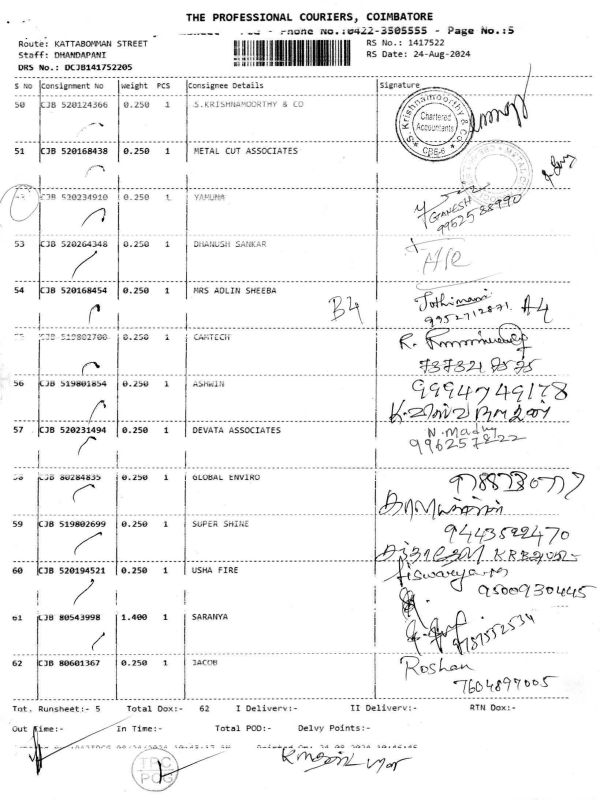 THE PROFESSIONAL COURIERS, COIMBATORE
Phone No.:0422-3505555 - Page No.:5
Route: KATTABOMMAN STREET
RS No.: 1417522
Staff: DHANDAPANI
RS Date: 24-Aug-2024
DRS No.: DCJB141752205
S No Consignment No Weight PCS Consignee Details Signature
50 CJB 520124366 0.250 1 S.KRISHNAMOORTHY & CO
S. Krishnamoorthy & Co
Chartered Accountants
CBE-6
51 CJB 520168438 0.250 1 METAL CUT ASSOCIATES
CJB 520234910 0.250 1 YAMUNA
GANESH
9952588990
53 CJB 520264348 0.250 1 DHANUSH SANKAR
54 CJB 520168454 0.250 1 MRS ADLIN SHEEBA
B4 Jothimani A4
9952712871
CJB 519802700 0.250 1 CAMTECH
R.
7373217575
56 CJB 519801854 0.250 1 ASHWIN
9994749178
57 CJB 520231494 0.250 1 DEVATA ASSOCIATES
N. Madhu
9962578222
58 CJB 80284835 0.250 1 GLOBAL ENVIRO
9788730777
59 CJB 519802699 0.250 1 SUPER SHINE
9443522470
60 CJB 520194521 0.250 1 USHA FIRE
Aiswarya
9500930445
61 CJB 80543998 1.400 1 SARANYA
9787552534
62 CJB 80601367 0.250 1 JACOB
Roshan
7604897005
Tot. Runsheet:- 5 Total Dox:- 62 I Delivery:- II Delivery:- RTN Dox:-
Out Time:- In Time:- Total POD:- Delvy Points:-
TPC
PCG